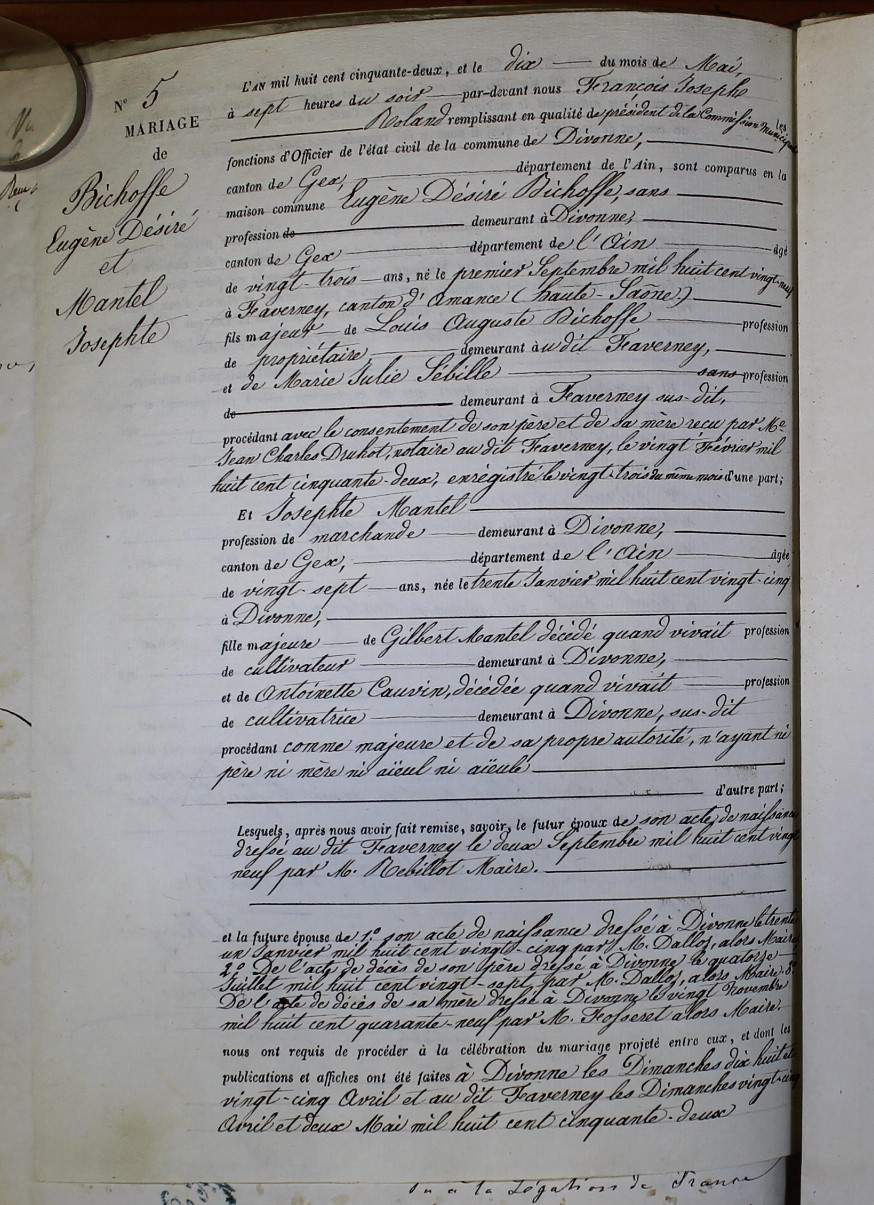 N° 5
MARIAGE
de
Bichoffe
Eugène Désiré
et
Mantel
Josephte
L'AN mil huit cent cinquante-deux, et le dix du mois de Mai,
à sept heures du soir par-devant nous François Joseph
Roland remplissant en qualité de président de la Commission Municipale les
fonctions d'Officier de l'état civil de la commune de Divonne,
canton de Gex, département de l'Ain, sont comparus en la
maison commune Eugène Désiré Bichoffe, sans
profession de demeurant à Divonne,
canton de Gex département de l'Ain âgé
de vingt-trois ans, né le premier Septembre mil huit cent vingt-neuf
à Faverney, canton d'Amance (haute-Saône)
fils majeur de Louis Auguste Bichoffe profession
de propriétaire demeurant au dit Faverney,
et de Marie Julie Sébille sans profession
de demeurant à Faverney sus-dit,
procédant avec le consentement de son père et de sa mère reçu par Me
Jean Charles Druhot, notaire au dit Faverney, le vingt Février mil
huit cent cinquante-deux, enrégistré le vingt-trois du même mois d'une part;
Et Josephte Mantel
profession de marchande demeurant à Divonne,
canton de Gex, département de l'Ain âgée
de vingt-sept ans, née le trente Janvier mil huit cent vingt-cinq
à Divonne,
fille majeure de Gilbert Mantel décédé quand vivait profession
de cultivateur demeurant à Divonne,
et de Antoinette Cauvin, décédée quand vivait profession
de cultivatrice demeurant à Divonne, sus-dit
procédant comme majeure et de sa propre autorité, n'ayant ni
père ni mère ni aïeul ni aïeule
d'autre part;
Lesquels, après nous avoir fait remise, savoir, le futur époux de son acte de naissance
dressé au dit Faverney le deux Septembre mil huit cent vingt
neuf par M. Rebillot Maire.
et la future épouse de 1° son acte de naissance dressé à Divonne le trente
un Janvier mil huit cent vingt-cinq par M. Dalloz, alors Maire
2° De l'acte de décès de son père dressé à Divonne le quatorze
Juillet mil huit cent vingt-sept par M. Dalloz, alors Maire. 3°
De l'acte de décès de sa mère dressé à Divonne le vingt Novembre
mil huit cent quarante-neuf par M. Fosseret alors Maire.
nous ont requis de procéder à la célébration du mariage projeté entre eux, et dont les
publications et affiches ont été faites à Divonne les Dimanches dix huit et
vingt-cinq Avril et au dit Faverney les Dimanches vingt-cinq
Avril et deux Mai mil huit cent cinquante-deux
à la Légation de France